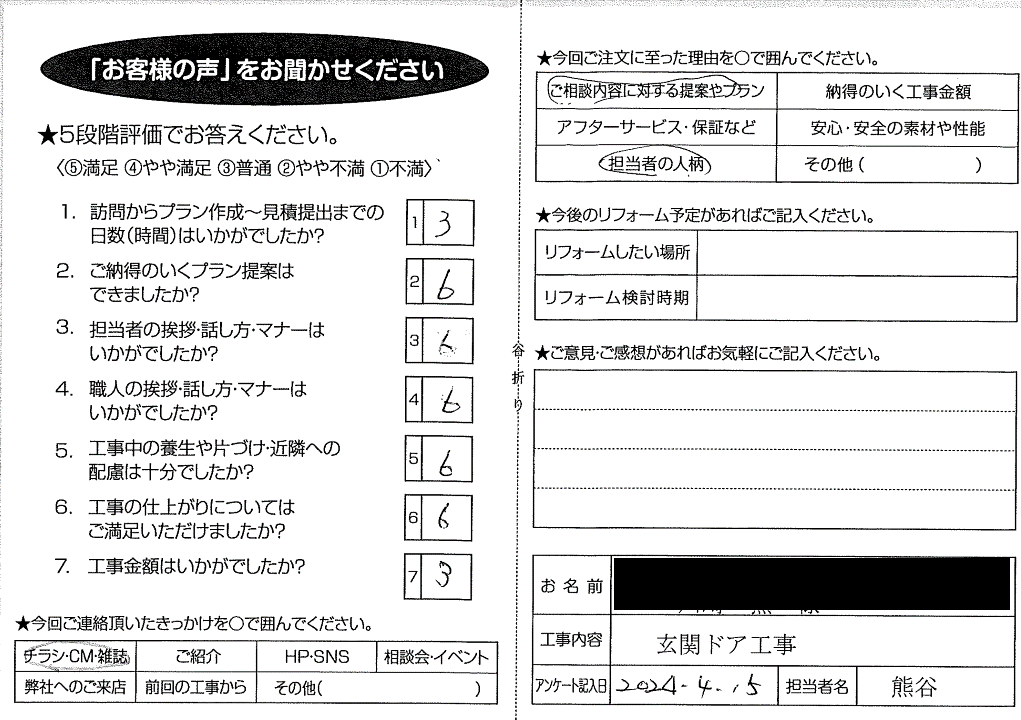 「お客様の声」をお聞かせください
★5段階評価でお答えください。
〈⑤満足 ④やや満足 ③普通 ②やや不満 ①不満〉
1. 訪問からプラン作成〜見積提出までの
日数(時間)はいかがでしたか?
1 3
2. ご納得のいくプラン提案は
できましたか?
2 6
3. 担当者の挨拶・話し方・マナーは
いかがでしたか?
3 6
4. 職人の挨拶・話し方・マナーは
いかがでしたか?
4 6
5. 工事中の養生や片づけ・近隣への
配慮は十分でしたか?
5 6
6. 工事の仕上がりについては
ご満足いただけましたか?
6 6
7. 工事金額はいかがでしたか?
7 3
★今回ご連絡頂いたきっかけを○で囲んでください。
チラシ・CM・雑誌 ご紹介 HP・SNS 相談会・イベント
弊社へのご来店 前回の工事から その他( )
谷折り
★今回ご注文に至った理由を○で囲んでください。
ご相談内容に対する提案やプラン 納得のいく工事金額
アフターサービス・保証など 安心・安全の素材や性能
担当者の人柄 その他( )
★今後のリフォーム予定があればご記入ください。
リフォームしたい場所
リフォーム検討時期
★ご意見・ご感想があればお気軽にご記入ください。
お名前
工事内容 玄関ドア工事
アンケート記入日 2024.4.15 担当者名 熊谷